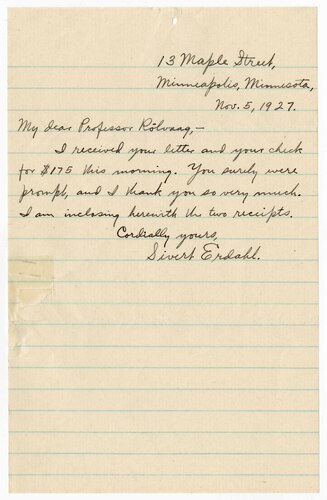 13 Maple Street,
Minneapolis, Minnesota,
Nov. 5, 1927.
My dear Professor Rölvaag,—
I received your letter and your check
for $175 this morning. You surely were
prompt, and I thank you so very much.
I am inclosing herewith the two receipts.
Cordially yours,
Sivert Erdahl.